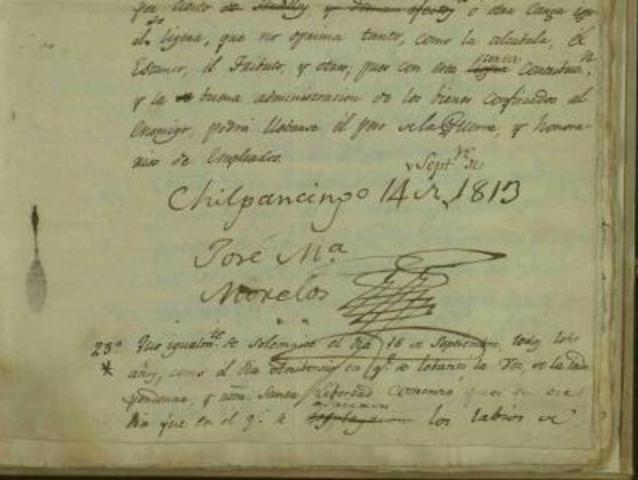 por ciento de Semillas, y demas efectos ó otra carga
asi ligera, que no oprima tanto, como la alcabala, el
Estanco, el Tributo, y otros, pues con esta ligera contribuc.n
y la buena administracion de los bienes confiscados al
Enemigo, podrá llebarse el peso de la Guerra, y honora-
rios de Empleados.
Chilpancingo 14 de Sept.re de 1813
José M.a
Morelos
23.o Que igualm.te se solemnice el dia 16 de Septiembre, todos los
años, como el dia Aniversario en q.e se lebantó la Voz, de la Inde
pendencia, y nra. Santa Libertad comenzó, pues en ese
Dia fue en el q.e se desplegaron los labios de